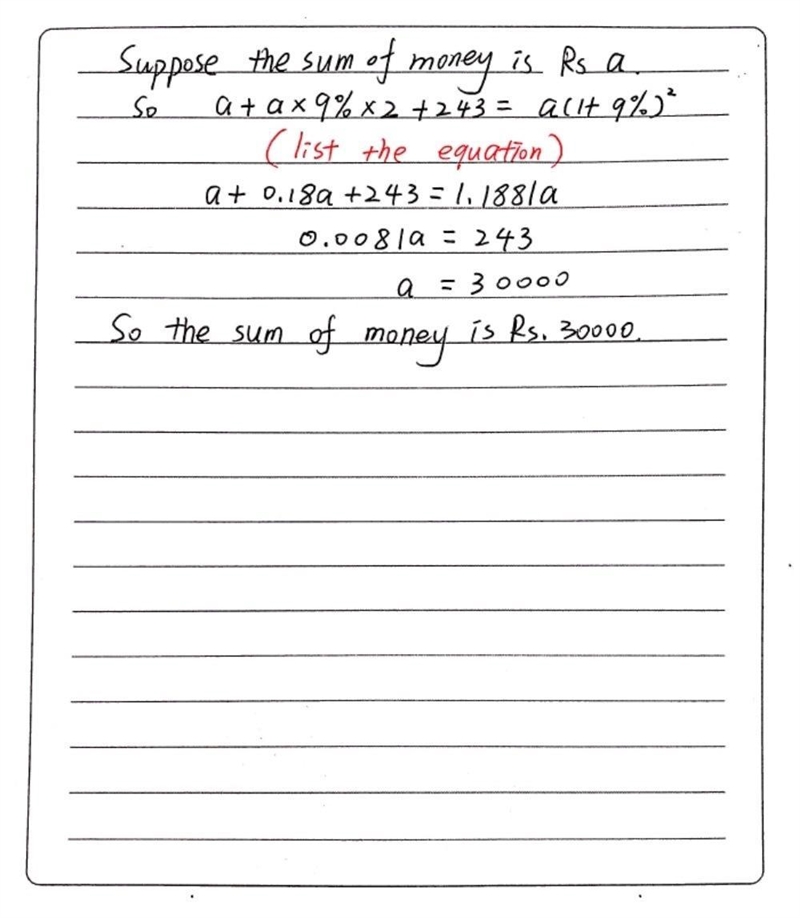 Suppose the sum of money is Rs a.
So a + a × 9% × 2 + 243 = a(1+ 9%)²
(list the equation)
a + 0.18a + 243 = 1.1881a
0.0081a = 243
a = 30000
So the sum of money is Rs. 30000.